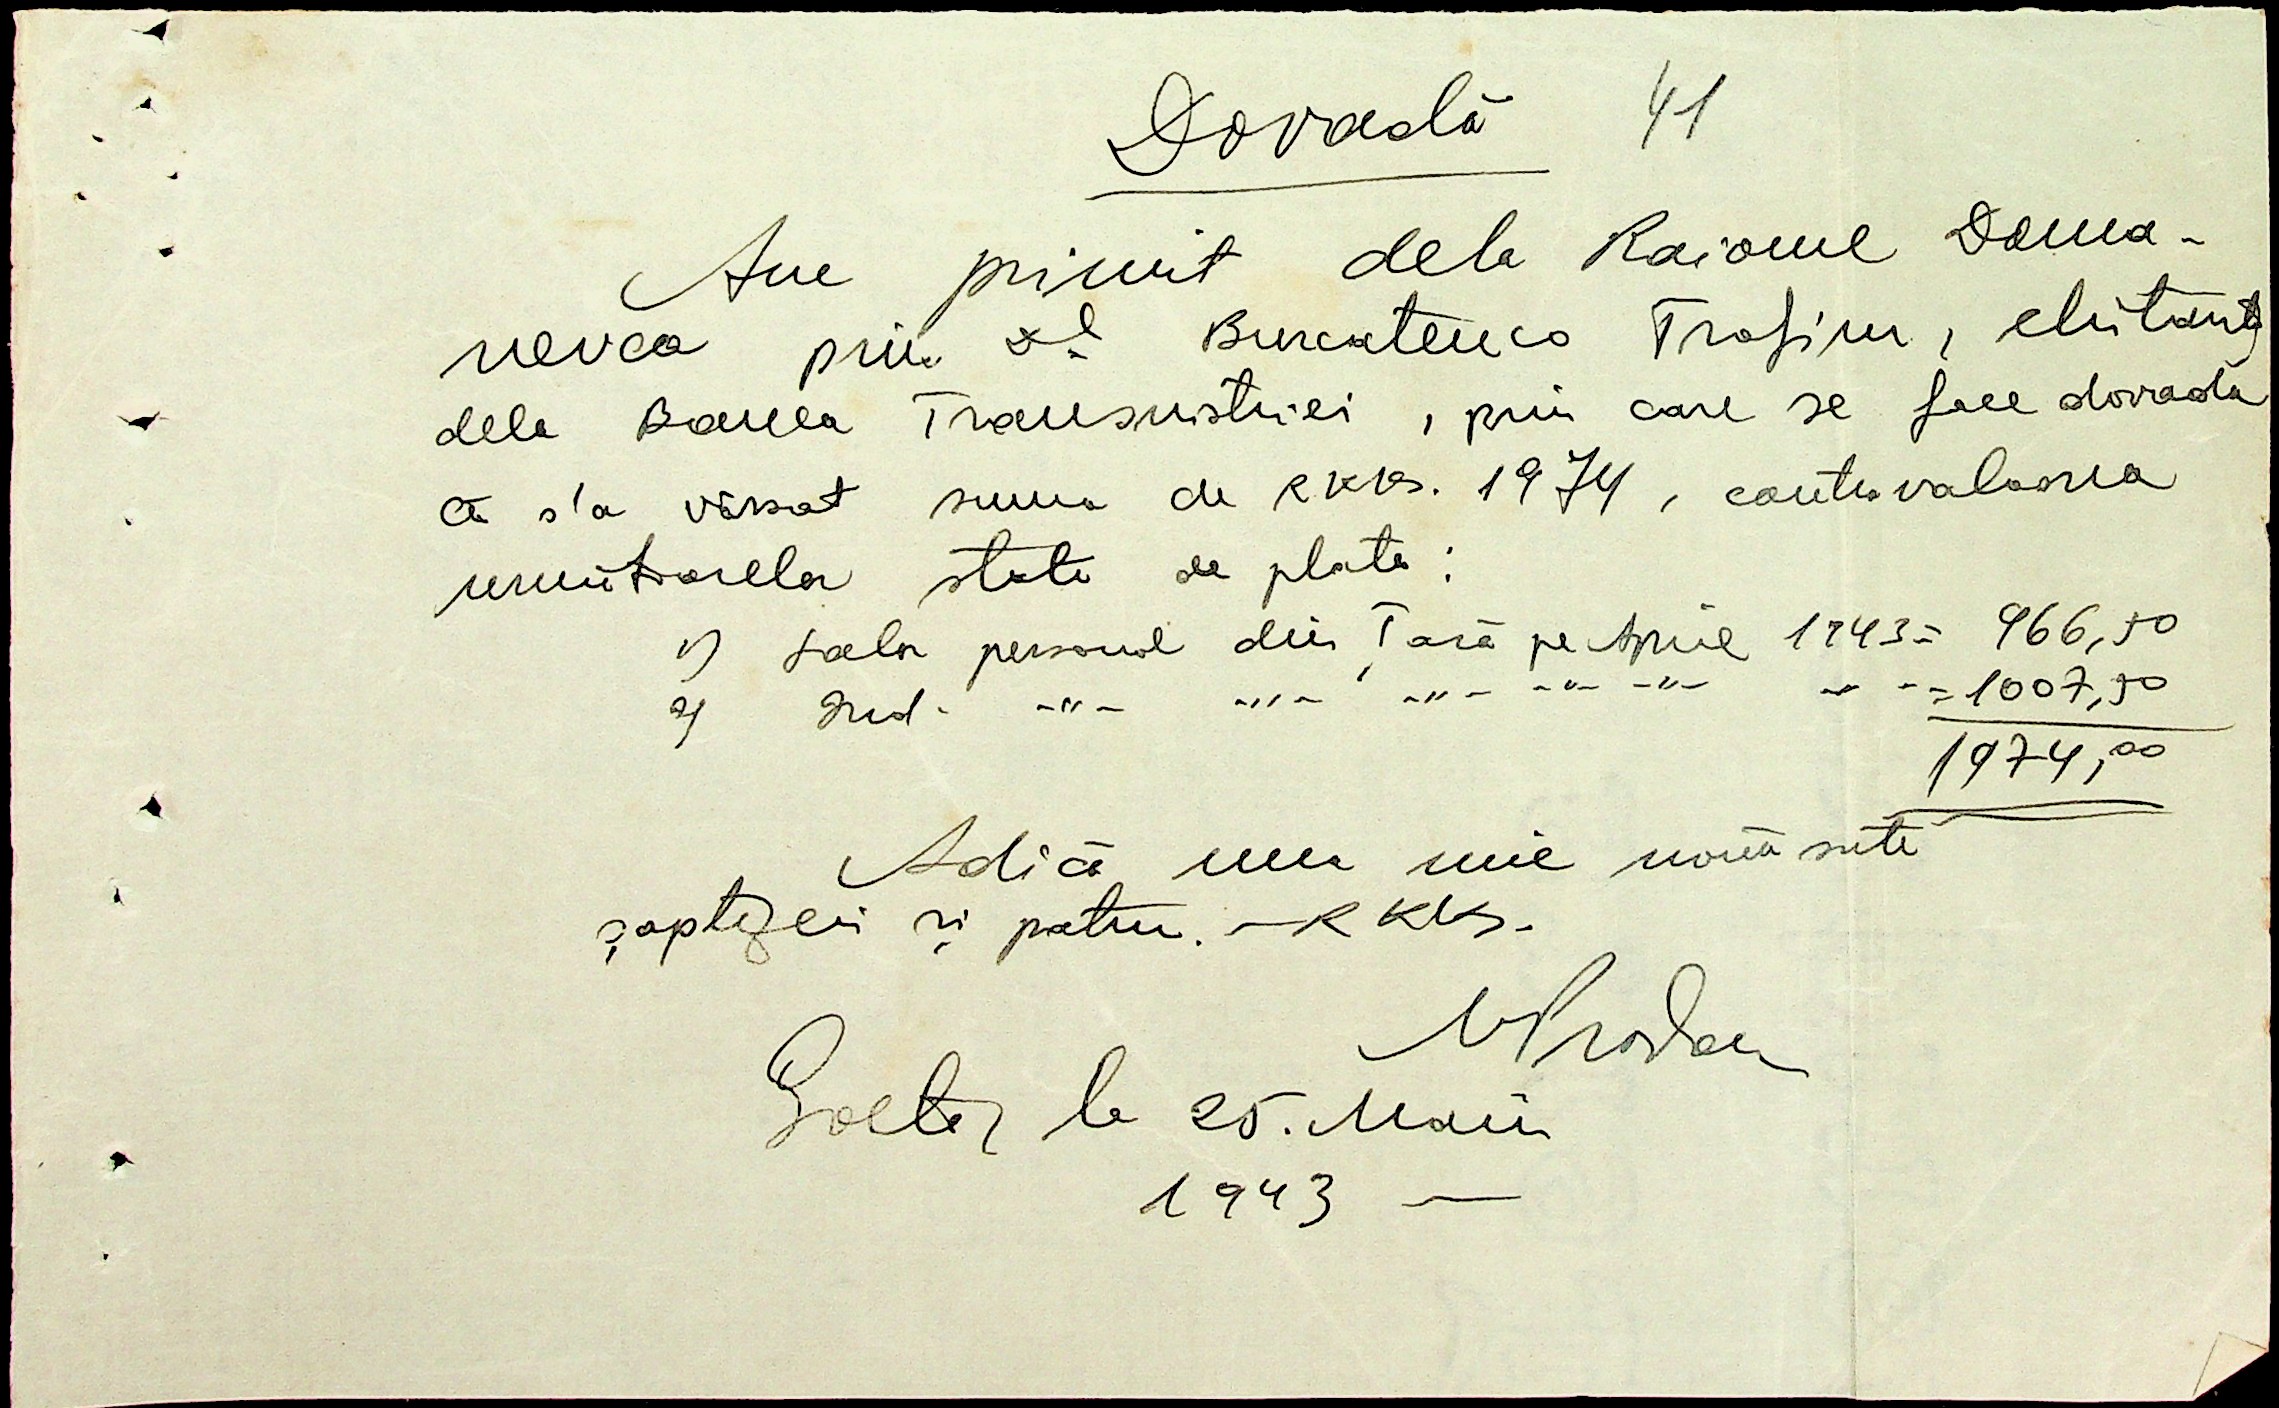 Dovadă 41
Am primit dela Raionul Doma-
nevca prin Dl Burcatenco Trofim, chitanța
dela Banca Transnistriei, prin care se face dovada
că s'a vărsat suma de RKKs. 1974, contravaloarea
următoarelor state de plată:
1) Salar personal din Țară pe Aprilie 1943 = 966,50
2) Ind. -"- -"- -"- -"- -"- -"- - = 1007,50
1974,00
Adică una mie nouă sute
șaptezeci și patru. — RKKs.
NProdan
Golta la 25. Maiu
1943 —